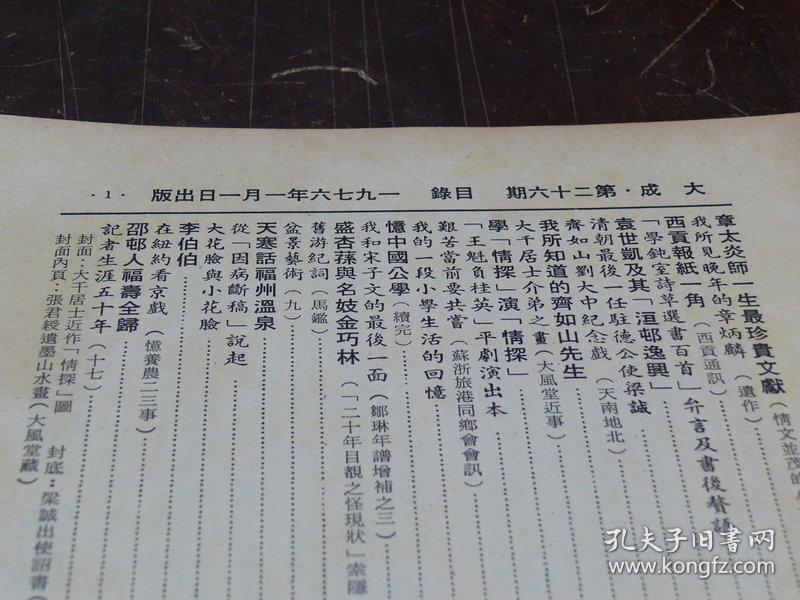 大成·第二十六期 目錄 一九七六年一月一日出版 ·1·
章太炎師一生最珍貴文獻（情文並茂的
我所見晚年的章炳麟（遺作）
西貢報紙一角（西貢通訊）
「學鈍室詩草選書百首」弁言及書後贅語
袁世凱及其「洹邨逸興」
清朝最後一任駐德公使梁誠（天南地北）
齊如山劉大中紀念戲
我所知道的齊如山先生
大千居士介弟之畫（大風堂近事）
學「情探」演「情探」
「王魁負桂英」平劇演出本
艱苦當前要共嘗（蘇浙旅港同鄉會會訊）
我的一段小學生活的回憶
憶中國公學（續完）
我和宋子文的最後一面（鄒琳年譜增補之三）
盛杏蓀與名妓金巧林（「二十年目覩之怪現狀」索隱
舊游紀詞（馬鑑）
盆景藝術（九）
天寒話福州溫泉
從「因病斷稿」說起
大花臉與小花臉
李伯伯
在紐約看京戲（憶養農二三事）
邵邨人福壽全歸
記者生涯五十年（十七）
封面：大千居士近作「情探」圖 封底：梁誠出使詔書（
封面內頁：張君綬遺墨山水畫（大風堂藏）
孔夫子旧书网
www.kongfz.com